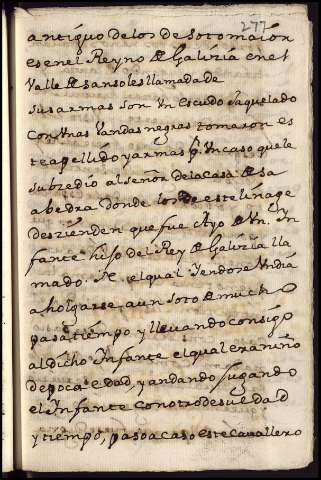 277
antiguo de los de Sotomaior
es en el Reyno de Galizia en el
Valle de sansoles llamada de
sus armas son Un escudo Jaquelado
con Unas Vandas negras tomaron es
te apellido y armas p. Un caso que le
subzedio al señor de la casa de sa
abedra donde los de este linage
deszienden que fue Ayo de Un In
fante hijo del Rey de Galizia lla
mado el qual Jendose Un dia
a holgarse a un soto de mucho
pasatiempo y lleuando consigo
al dicho Infante el qual era niño
de poca edad y andando Jugando
el Infante con otro de su edad
y tiempo, pasó acaso este cavallero